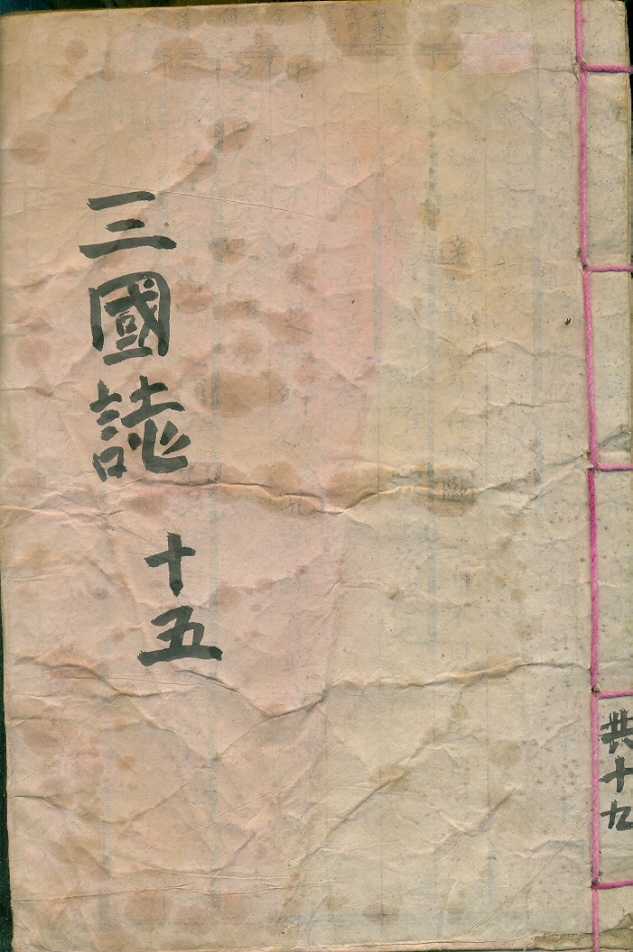 三國誌
十五
共十九